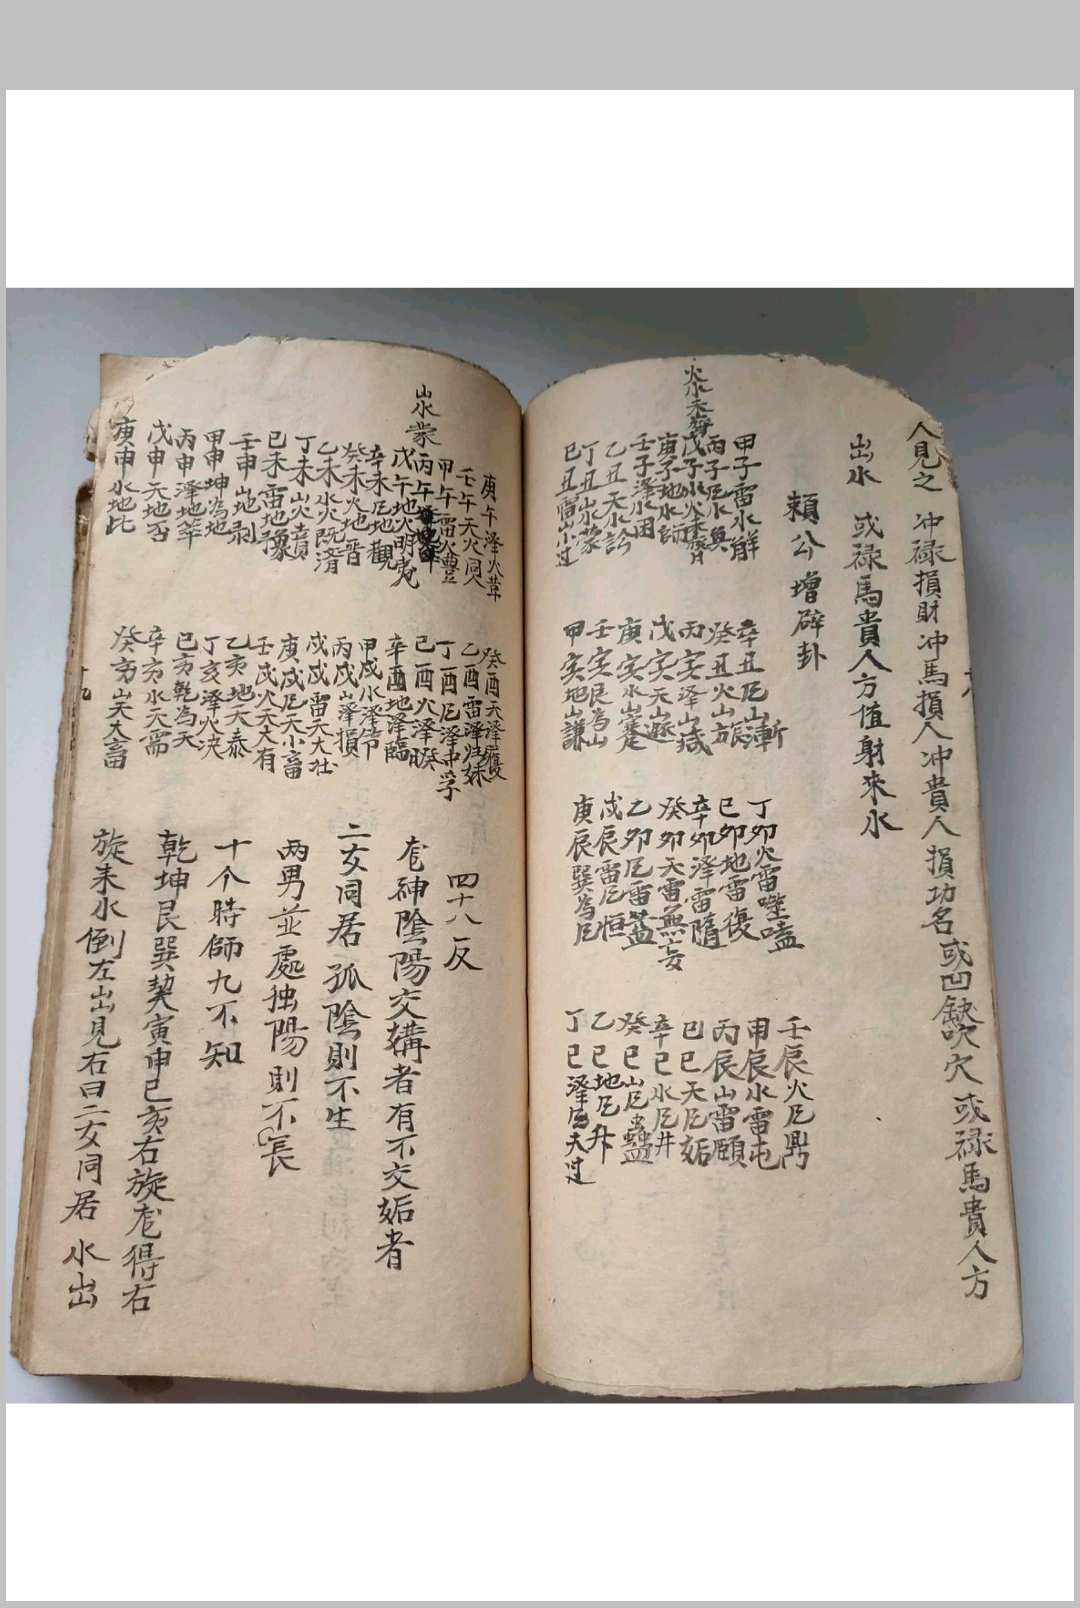 人見之 冲禄損財冲馬損人冲貴人損功名或凹缺吹穴或禄馬貴人方
出水 或禄馬貴人方值射來水
賴公增辟卦
火水未济
甲子雷水觧
丙子厄水奐
戊子水火未濟
庚子地水師
壬子泽水困
乙丑天水訟
丁丑山水蒙
己丑雷山小过
辛丑厄山漸
癸丑火山旅
丙亥泽山咸
戊亥天山遯
庚亥水山蹇
壬亥艮為山
甲亥地山謙
丁夘火雷噬嗑
已夘地雷復
辛夘泽雷隨
癸夘天雷無妄
乙夘厄雷益
戊辰雷厄恒
庚辰巽為厄
壬辰火厄鼎
甲辰水雷屯
丙辰山雷頤
已巳天厄姤
辛巳水厄井
癸巳山厄蠱
乙巳地厄升
丁巳泽厄大过
山水蒙
庚午泽火革
壬午天火同人
甲午雷火豐
丙午
戊午地火明夷
辛未厄地觀
癸未火地晋
乙未水火既済
丁未山火賁
已未雷地豫
壬申山地剥
甲申坤為地
丙申泽地萃
戊申天地否
庚申水地比
癸酉天泽履
乙酉雷泽归妹
丁酉厄泽中孚
已酉火泽暌
辛酉地泽臨
甲戌水泽節
丙戌山泽損
戊戌雷天大壮
庚戌厄天小畜
壬戌火天大有
乙亥地天泰
丁亥泽火决
已亥乾為天
辛亥水天需
癸亥山天大畜
四十八反
龙神陰陽交媾者有不交姤者
二女同居孤陰則不生
两男並處独陽則不長
十个時師九不知
乾坤艮巽契寅申巳亥右旋龙得右
旋来水倒左出見右曰二女同居 水出